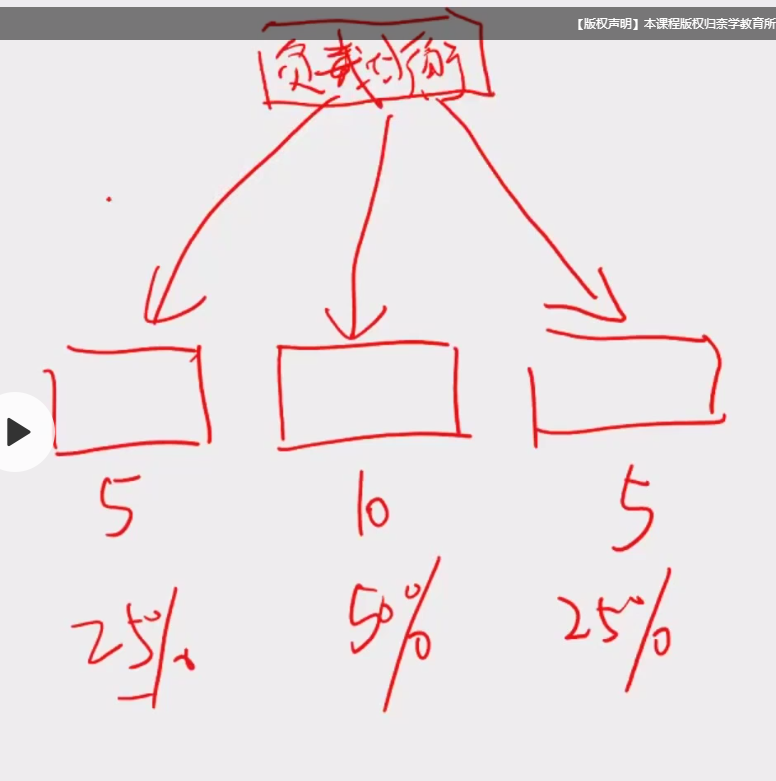 【版权声明】本课程版权归奈学教育所
负载均衡
5 10 5
25% 50% 25%